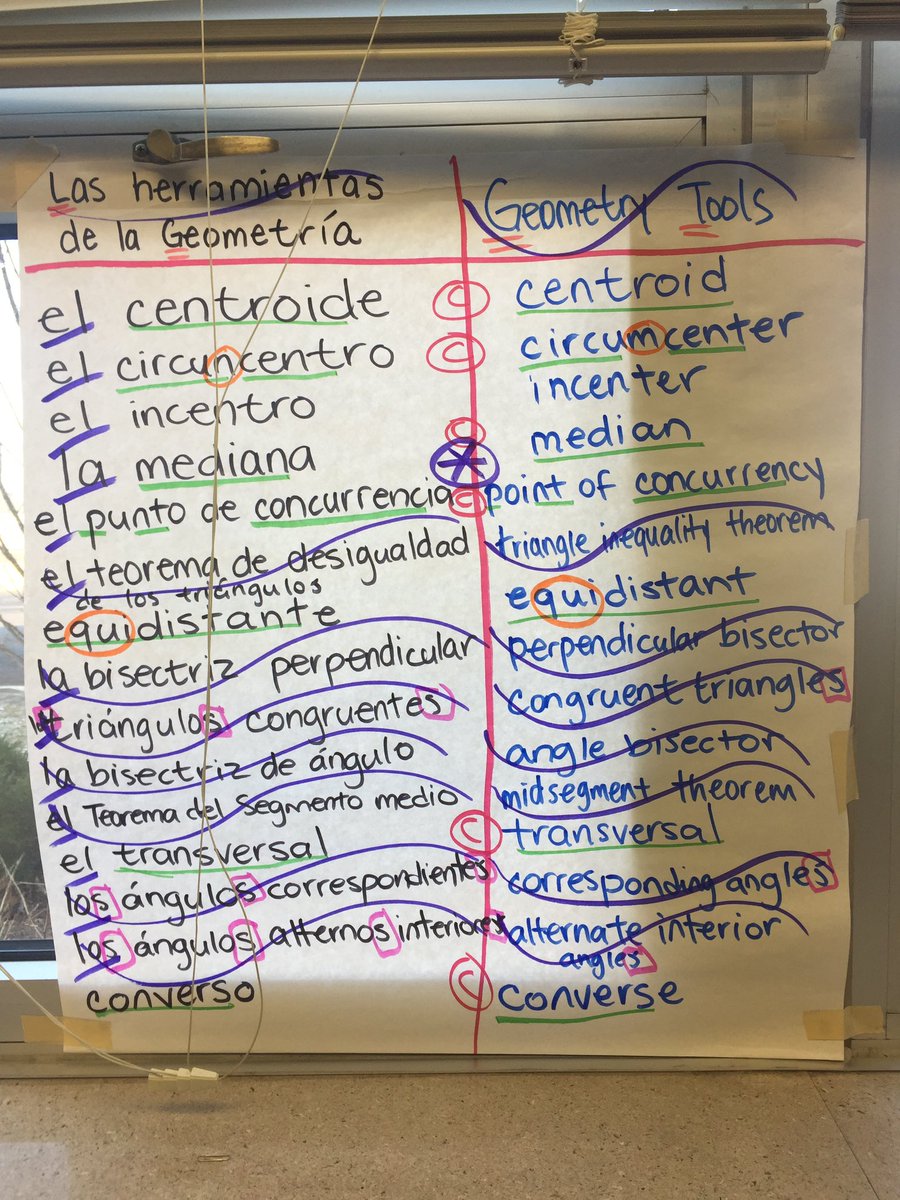 Las herramientas
de la Geometría
el centroide
el circuncentro
el incentro
la mediana
el punto de concurrencia
el teorema de desigualdad
de los triángulos
equidistante
la bisectriz perpendicular
triángulos congruentes
la bisectriz de ángulo
el Teorema del Segmento medio
el transversal
los ángulos correspondientes
los ángulos alternos interiores
converso
Geometry Tools
C centroid
C circumcenter
incenter
C median
C point of concurrency
triangle inequality theorem
equidistant
perpendicular bisector
congruent triangles
angle bisector
midsegment theorem
C transversal
corresponding angles
alternate interior
angles
C converse